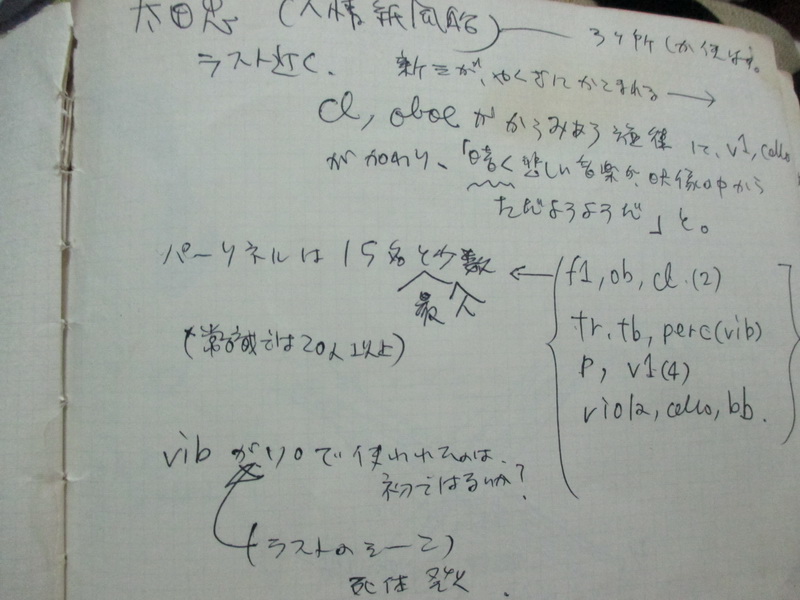 太田忠 (人情紙風船)
3ヶ所しか使はず。
ラスト近く、新三が、やくざにかこまれる →
Cl, oboe がからみあう旋律に、v1, cello
が加わり、「暗く悲しい音楽が、映像の中から
ただようようだ」と。
パーソネルは15名と少数 ←
最少
(常識では20人以上)
f1, ob, cl.(2)
tr. tb, perc(vib)
P, v1(4)
viola, cello, bb.
vib がソロで使われてるのは、
初ではるいか?
(ラストのシーン)
死体発見.